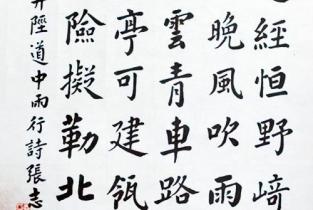 經恒野﨑
晚風吹雨
雲青車路
亭可建瓴
險擬勒北
陘道中雨行詩張志